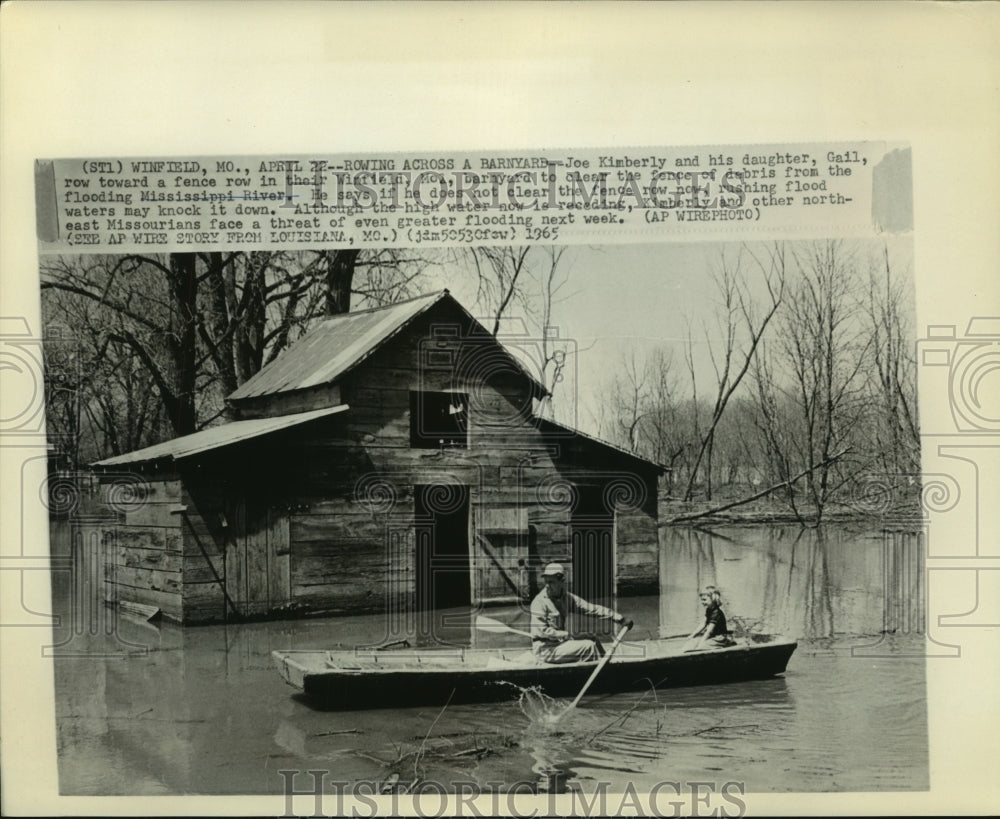 (ST1) WINFIELD, MO., APRIL 22--ROWING ACROSS A BARNYARD--Joe Kimberly and his daughter, Gail,
row toward a fence row in their Winfield, Mo., barnyard to clear the fence of debris from the
flooding Mississippi River. He says if he does not clear the fence row now, rushing flood
waters may knock it down. Although the high water now is receding, Kimberly and other north-
east Missourians face a threat of even greater flooding next week. (AP WIREPHOTO)
(SEE AP WIRE STORY FROM LOUISIANA, MO.) (jdm50530fsw) 1965
HISTORIC IMAGES
HISTORIC IMAGES